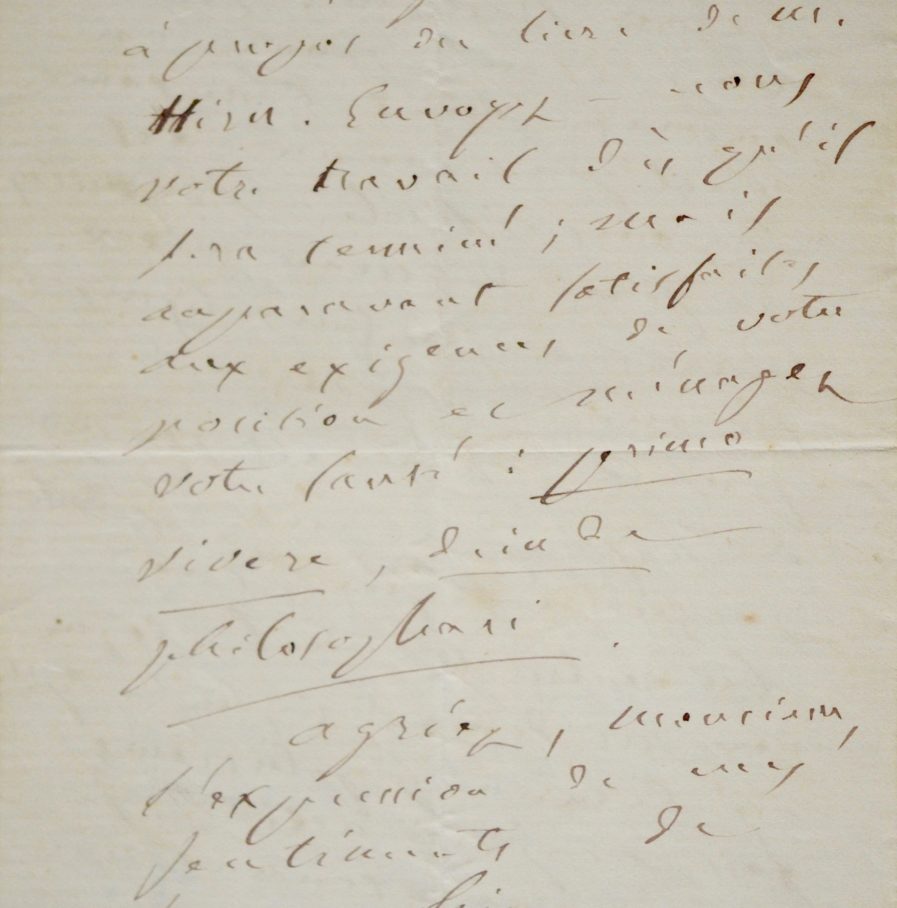 à propos du livre de M.
Hirn. Envoyez-nous
votre travail dès qu'il
sera terminé ; mais
auparavant satisfaites
aux exigences de votre
position et ménagez
votre santé : primo
vivere, deinde
philosophari.
agréez, monsieur,
l'expression de mes
sentiments de